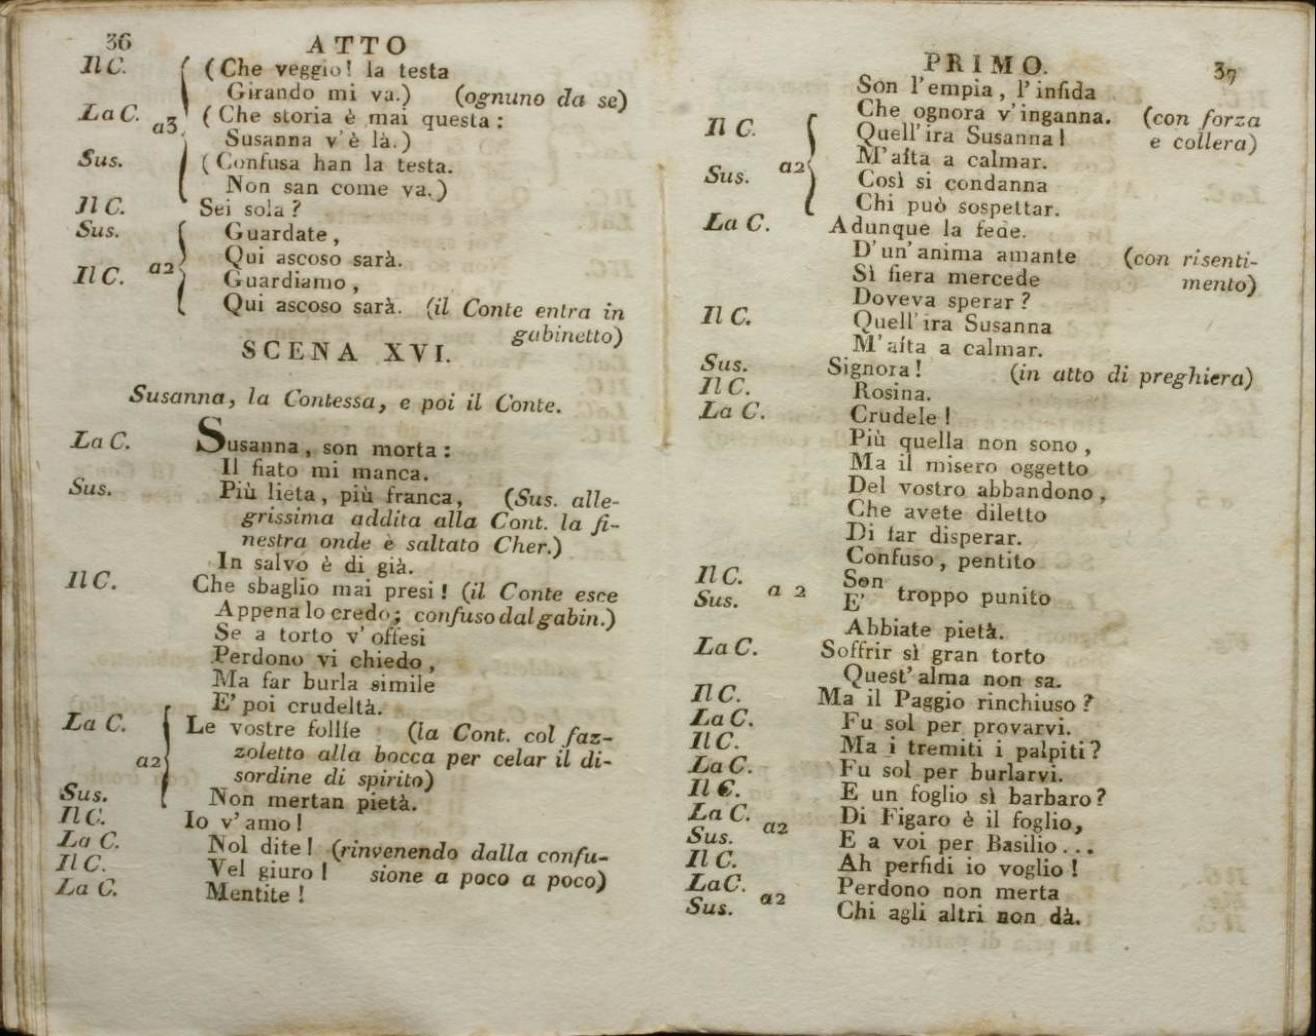 36
ATTO
Il C. (Che veggio! la testa
Girando mi va.) (ognuno da se)
La C. a3 (Che storia è mai questa:
Susanna v'è là.)
Sus. (Confusa han la testa.
Non san come va.)
Il C. Sei sola?
Sus. Guardate,
Qui ascoso sarà.
Il C. a2 Guardiamo,
Qui ascoso sarà. (il Conte entra in
gabinetto)
SCENA XVI.
Susanna, la Contessa, e poi il Conte.
La C. Susanna, son morta:
Il fiato mi manca.
Sus. Più lieta, più franca, (Sus. alle-
grissima addita alla Cont. la fi-
nestra onde è saltato Cher.)
In salvo è di già.
Il C. Che sbaglio mai presi! (il Conte esce
Appena lo credo; confuso dal gabin.)
Se a torto v'offesi
Perdono vi chiedo,
Ma far burla simile
E' poi crudeltà.
La C. Le vostre follíe (la Cont. col faz-
a2 zoletto alla bocca per celar il di-
sordine di spirito)
Sus. Non mertan pietà.
Il C. Io v'amo!
La C. Nol dite! (rinvenendo dalla confu-
Il C. Vel giuro! sione a poco a poco)
La C. Mentite!
PRIMO.
37
Son l'empia, l'infida
Che ognora v'inganna. (con forza
Il C. Quell'ira Susanna! e collera)
M'aíta a calmar.
Sus. a2 Così si condanna
Chi può sospettar.
La C. Adunque la fede.
D'un'anima amante (con risenti-
Sì fiera mercede mento)
Doveva sperar?
Il C. Quell'ira Susanna
M'aíta a calmar.
Sus. Signora! (in atto di preghiera)
Il C. Rosina.
La C. Crudele!
Più quella non sono,
Ma il misero oggetto
Del vostro abbandono,
Che avete diletto
Di far disperar.
Confuso, pentito
Il C. Son
Sus. a 2 E' troppo punito
Abbiate pietà.
La C. Soffrir sì gran torto
Quest'alma non sa.
Il C. Ma il Paggio rinchiuso?
La C. Fu sol per provarvi.
Il C. Ma i tremiti i palpiti?
La C. Fu sol per burlarvi.
Il C. E un foglio sì barbaro?
La C. Di Figaro è il foglio,
Sus. a2 E a voi per Basilio...
Il C. Ah perfidi io voglio!
La C. Perdono non merta
Sus. a2 Chi agli altri non dà.